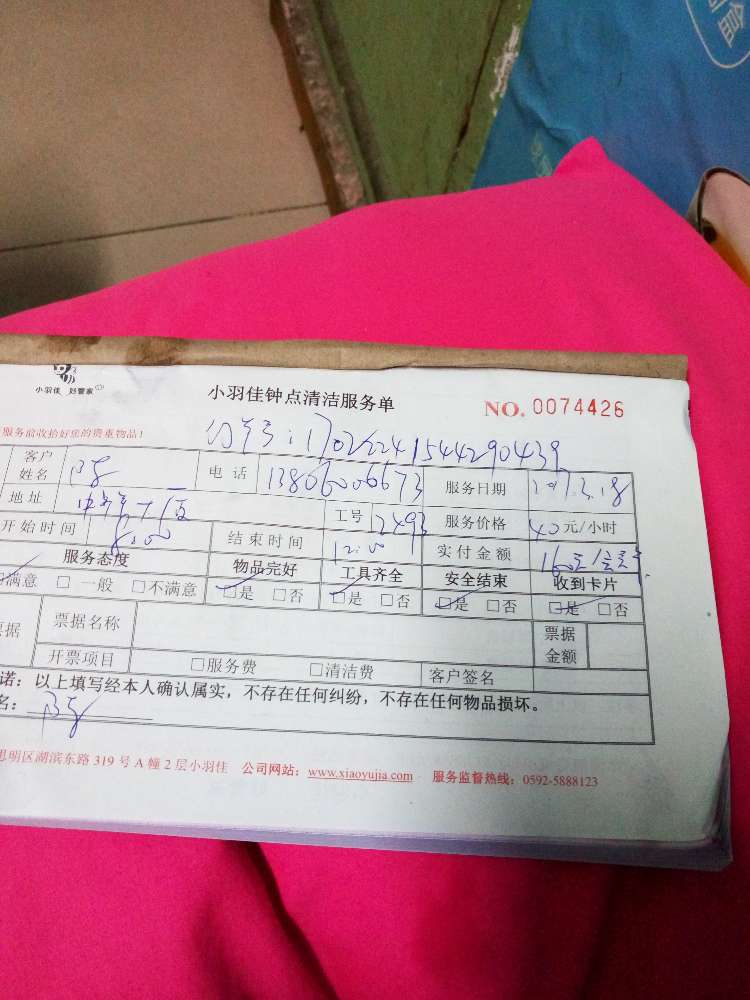 小羽佳 妙管家
小羽佳钟点清洁服务单
NO. 0074426
服务前收拾好您的贵重物品!
订单号:170222415442904​39
客户姓名 电话 13806006673 服务日期 2017.3.18
地址 工号 2493 服务价格 40元/小时
开始时间 8:00 结束时间 12:00 实付金额 160元
服务态度 物品完好 工具齐全 安全结束 收到卡片
满意 □一般 □不满意 □是 □否 □是 □否 □是 □否 □是 □否
据 票据名称 票据金额
开票项目 □服务费 □清洁费 客户签名
诺:以上填写经本人确认属实,不存在任何纠纷,不存在任何物品损坏。
名:
思明区湖滨东路 319 号 A 幢 2 层小羽佳 公司网站:www.xiaoyujia.com 服务监督热线:0592-5888123